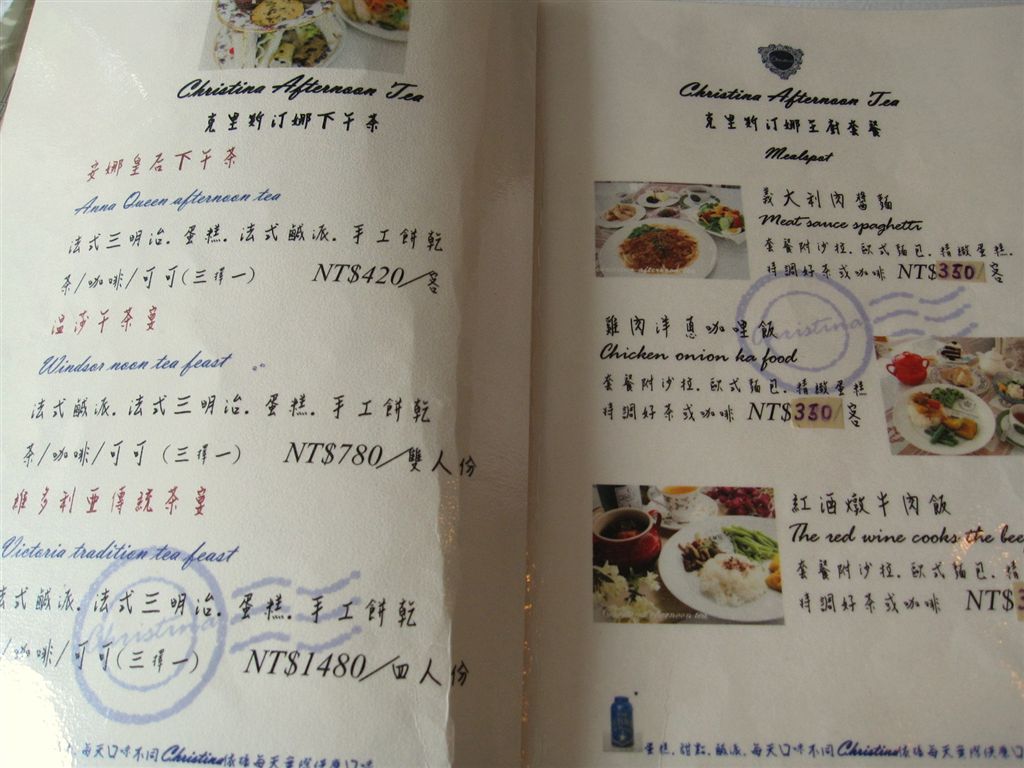 Christina Afternoon Tea
克里斯汀娜下午茶
安娜皇后下午茶
Anna Queen afternoon tea
法式三明治.蛋糕.法式鹹派.手工餅乾
茶/咖啡/可可(三擇一) NT$420/客
溫莎午茶宴
Windsor noon tea feast
法式鹹派.法式三明治.蛋糕.手工餅乾
茶/咖啡/可可(三擇一) NT$780/雙人份
維多利亞傳統茶宴
Victoria tradition tea feast
法式鹹派.法式三明治.蛋糕.手工餅乾
/咖啡/可可(三擇一) NT$1480/四人份
Christina
每天口味不同Christina依循每天
Christina Afternoon Tea
克里斯汀娜主廚套餐
Mealspot
義大利肉醬麵
Meat sauce spaghetti
套餐附沙拉.歐式麵包.精緻蛋糕.
特調好茶或咖啡 NT$350/客
Christina
雞肉洋蔥咖哩飯
Chicken onion ka food
套餐附沙拉.歐式麵包.精緻蛋糕
特調好茶或咖啡 NT$350/客
紅酒燉牛肉飯
The red wine cooks the bee
套餐附沙拉.歐式麵包.精
特調好茶或咖啡 NT$3
蛋糕.甜點.鹹派.每天口味不同Christina依循每天